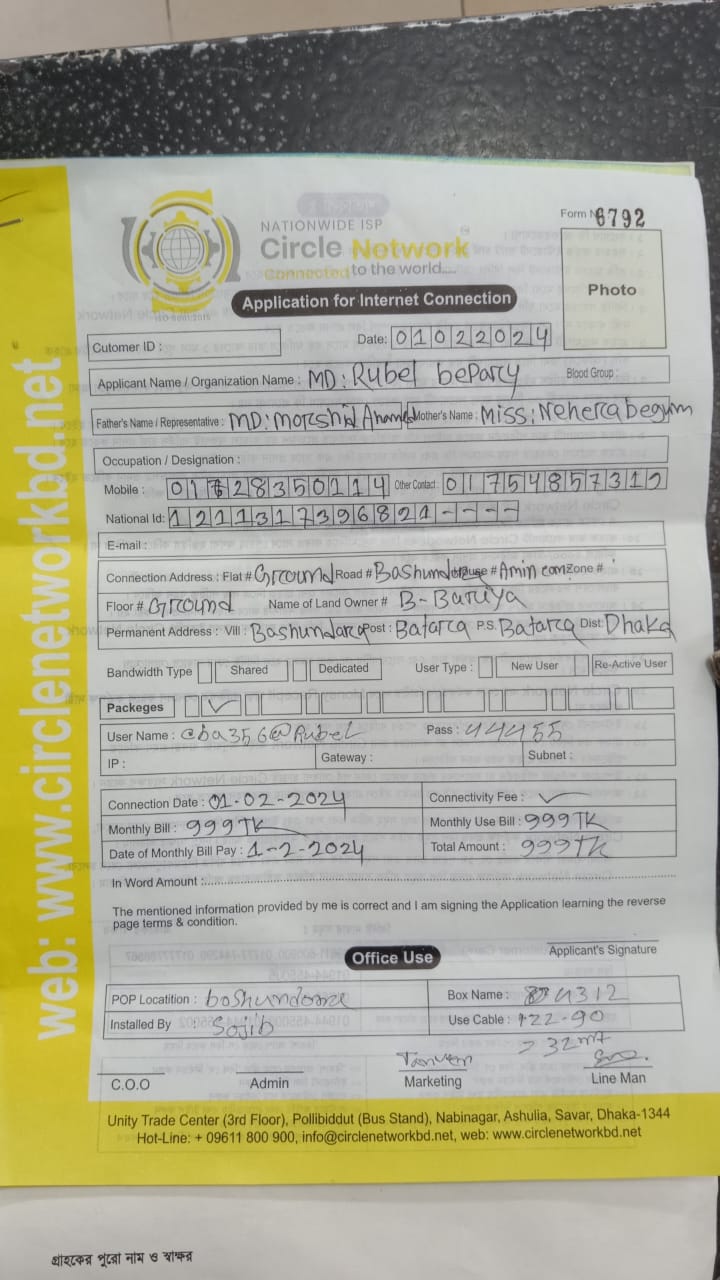 Form N 6792
NATIONWIDE ISP
Circle Network
Connected to the world....
ISO 9001:2015
Photo
Application for Internet Connection
Cutomer ID :
Date: 01022024
Applicant Name / Organization Name : MD: Rubel beparcy Blood Group :
Father's Name / Representative : MD: morcshid Mother's Name : Miss: Neherca begum
Occupation / Designation :
Mobile : 01628350114 Other Contact : 01754857312
National Id: 1211317396821----
E-mail :
Connection Address : Flat # Grcound Road # Bashundorca # Amin com Zone #
Floor # Grcound Name of Land Owner # B-Bariya
Permanent Address : Vill : Bashundarca Post : Batarca P.S. Batarca Dist: Dhaka
Bandwidth Type Shared Dedicated User Type : New User Re-Active User
Packeges ✓
User Name : cba356@Rubel Pass : 44455
IP : Gateway : Subnet :
Connection Date : 01-02-2024 Connectivity Fee : ✓
Monthly Bill : 999TK Monthly Use Bill : 999TK
Date of Monthly Bill Pay : 1-2-2024 Total Amount : 999TK
In Word Amount :
The mentioned information provided by me is correct and I am signing the Application learning the reverse
page terms & condition.
Applicant's Signature
Office Use
POP Locatition : boshundorra Box Name : 4312
Installed By : Sojib Use Cable : 122-90
> 32mt
Tanven
C.O.O Admin Marketing Line Man
Unity Trade Center (3rd Floor), Pollibiddut (Bus Stand), Nabinagar, Ashulia, Savar, Dhaka-1344
Hot-Line: + 09611 800 900, info@circlenetworkbd.net, web: www.circlenetworkbd.net
web: www.circlenetworkbd.net
গ্রাহকের পুরো নাম ও স্বাক্ষর